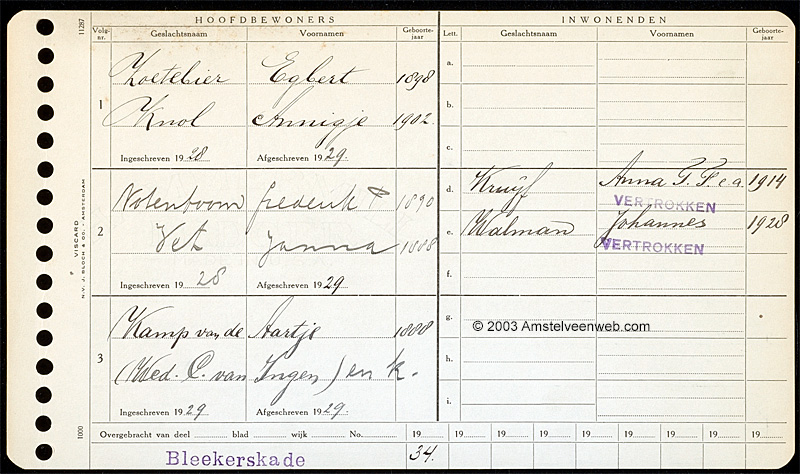 HOOFDBEWONERS INWONENDEN
11287 Volg-nr. Geslachtsnaam Voornamen Geboorte-jaar Lett. Geslachtsnaam Voornamen Geboorte-jaar
Zoetebier Egbert 1898 a.
1 Knol Annigje 1902 b.
Ingeschreven 1928 Afgeschreven 1929. c.
Notenboom Frederik 1890 d. Kruijf Anna P. e.a. 1914
VERTROKKEN
2 Vet Janna 1888 e. Walman Johannes 1928
VERTROKKEN
Ingeschreven 1928 Afgeschreven 1929 f.
Kamp van de Aartje 1888 g.
© 2003 Amstelveenweb.com
3 (Wed. C. van Ingen) en k. h.
Ingeschreven 1929 Afgeschreven 1929. i.
VISCARD
N.V. J. BLOCH & CO. - AMSTERDAM
1000
Overgebracht van deel blad wijk No. 19 19 19 19 19 19 19 19 19
Bleekerskade 34.